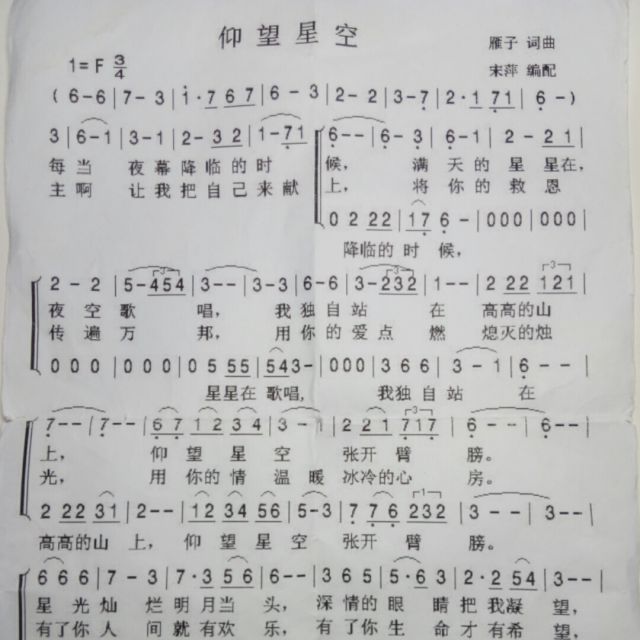 仰望星空
雁子 词曲
1=F 3/4
宋萍 编配
(6-6|7-3|1·767|6-3|2-2|3-7|2·171|6-)
3|6-1|3-1|2-32|1-71|6--|6-3|6-1|2-21|
每当 夜幕降临的时 候， 满天的星星在，
主啊 让我把自己来献 上， 将你的救恩
022 2|17 6-|000|000|
降临的时候，
2-2|5-454|3--|3-3|6-6|3-232|1--|2 22 121|
夜空歌 唱， 我独自站 在 高高的山
传遍万 邦， 用你的爱点 燃 熄灭的烛
000|000|05 55|543-|000|366|3-1|6--|
星星在歌唱， 我独自站 在
7--|7--|67 12 34|3-1|2 21 717|6--|6--|
上， 仰望星空 张开臂 膀。
光， 用你的情温暖 冰冷的心 房。
2 22 31|2--|12 34 56|5-3|7 76 232|3--|3--|
高高的山上， 仰望星空 张开臂 膀。
666|7-3|7·356|6--|365|5·63|2·254|3--|
星光灿 烂明月当 头， 深情的眼 睛把我凝 望，
有了你人 间就有欢 乐， 有了你生 命才有希 望，